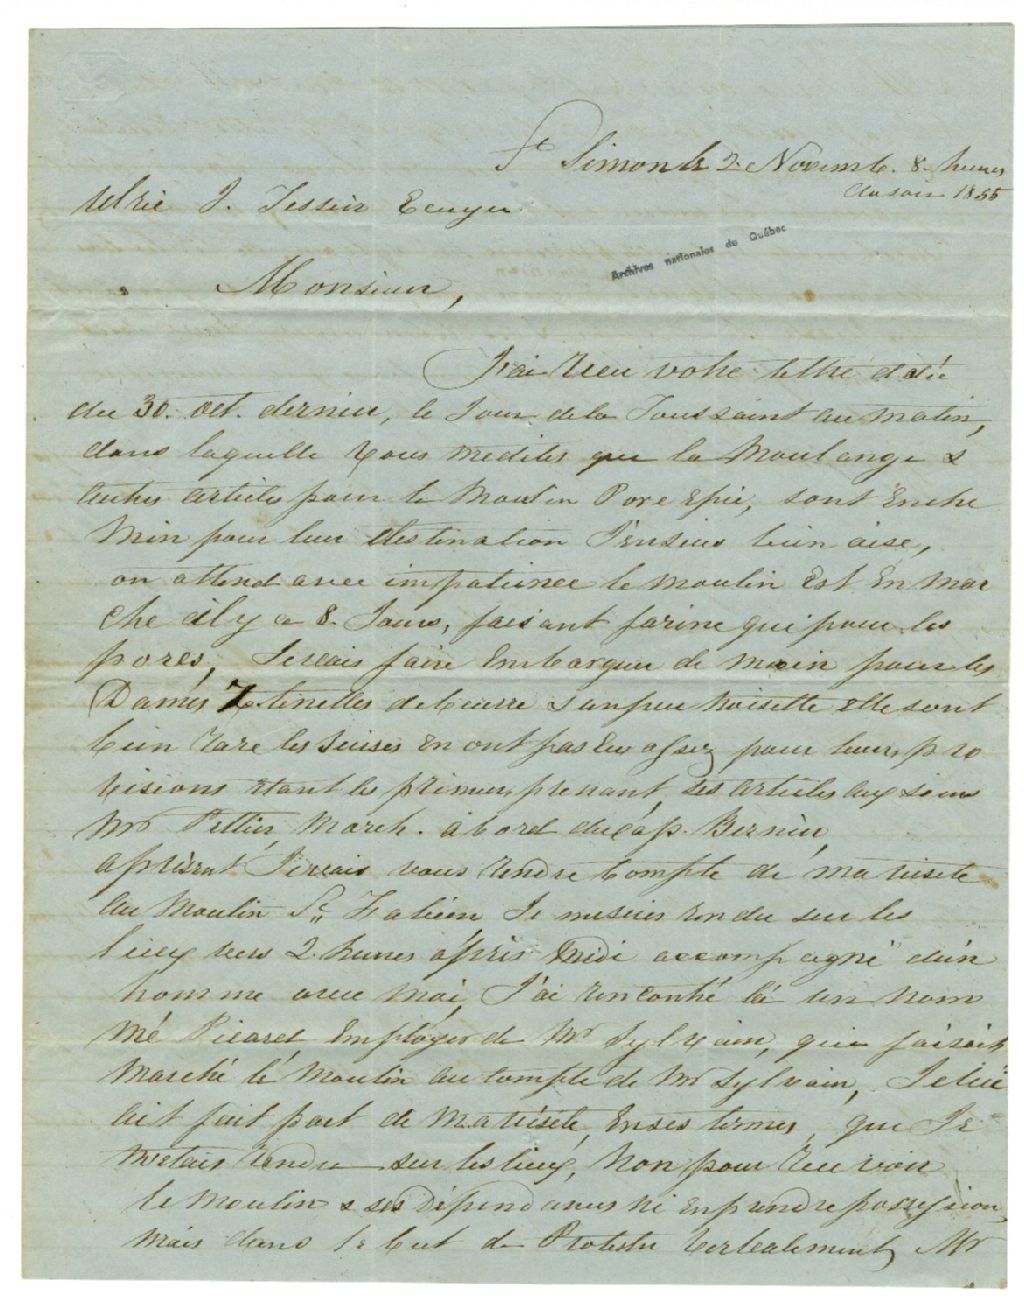 St Simon le 2 Novemb. 8 heures
du soir 1855
Ulric J. Tessier Ecuyer
Archives nationales du Québec
Monsieur,
J'ai recu votre lettre datée
du 30. oct. dernier, le Jour de la Toussaint au matin,
dans laquelle vous me dites que la Moulange &
autres articles pour le Moulin Porc Epic, sont en che
min pour leur destination J'en suis bien aise,
on attend avec impatience le moulin est En mar
che il y a 8. Jours, faisant farine qui pour les
porcs, Je vais faire Embarquer demain pour les
Dames 7 tinettes de beurre sanpeu noisette elle sont
bien rare les Suises en ont pas Eu assez pour leur pro
visions étant les primier prenant ses articles aux soins
Mr Pettier March. abord du Cap. Bernier,
aprèsent Je vais vous rendre Compte de ma visite
au Moulin St Fabien Je me suis rendu sur les
lieux vers 2 heures après Midi accompagné d'un
homme avec moi, J'ai rencontré là un nom
mé Picard Employer de Mr Sylvain, qui faisait
Marché le Moulin au compte de Mr Sylvain, Je lui
ait fait part de Ma visite, En ses termes, que Je
m'etais rendu sur les lieux, Non pour recevoir
le Moulin & ses Dépendances ni En prendre possession,
Mais dans le but de Protester Verbalement, Mr